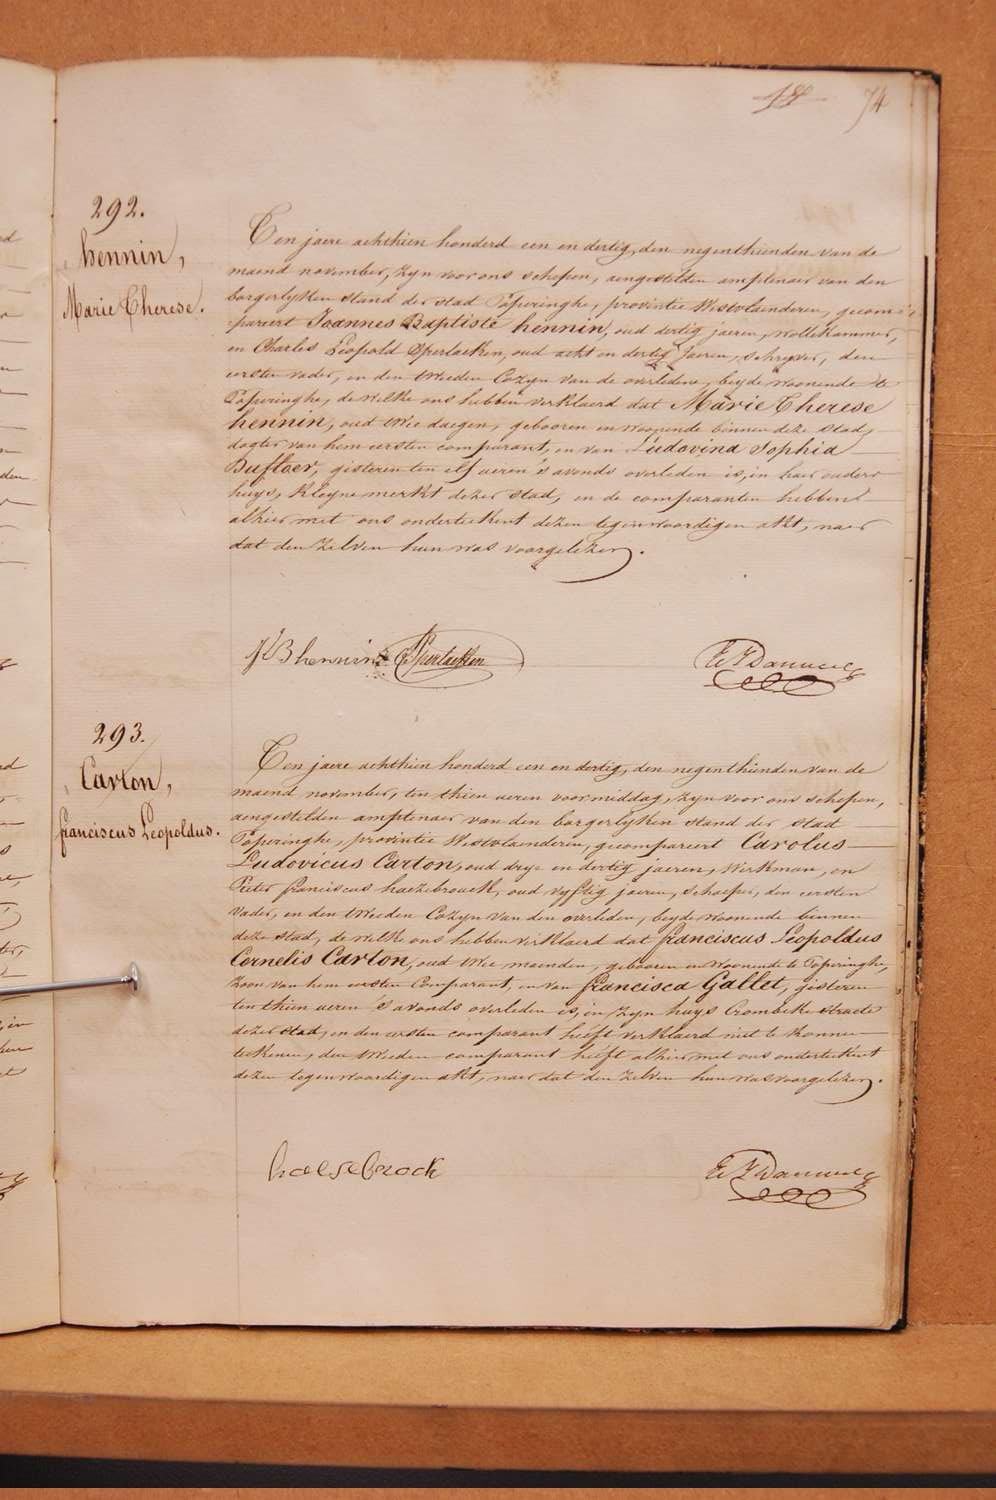 74
292.
hennin,
Marie Therese.
Ten jaere achthien honderd een en dertig, den negenthienden van de
maend november, zyn voor ons schepen, aengestelden amptenaer van den
borgerlyken stand der stad Poperinghe, provintie Westvlaenderen, gecom-
-pareert Joannes Baptiste hennin, oud dertig jaeren, wollekammer,
en Charles Leopold Sperlaeken, oud acht en dertig jaeren, schryver, den
eersten vader, en den tweeden Cozyn van de overledene, beyde woonende te
Poperinghe, de welke ons hebben verklaerd dat Marie Therese
hennin, oud twee daegen, gebooren en woonende binnen deze stad,
dogter van hem eersten comparant, en van Ludovina Sophia
Dufloer, gisteren ten elf ueren 's avonds overleden is, in haer ouders
huys, kleyne merkt dezer stad, en de comparanten hebben
alhier met ons onderteekent dezen tegenwoordigen akt, naer
dat den zelven hun was voorgelezen.
JB hennin Sperlaeken
293.
Carton,
franciscus Leopoldus.
Ten jaere achthien honderd een en dertig, den negenthienden van de
maend november, ten thien ueren voormiddag, zyn voor ons schepen,
aengestelden amptenaer van den borgerlyken stand der stad
Poperinghe, provintie Westvlaenderen, gecompareert Carolus
Ludovicus Carton, oud drye en dertig jaeren, Werkman, en
Pieter franciscus haezebrouck, oud vyftig jaeren, schaeper, den eersten
vader, en den tweeden Cozyn van den overleden, beyde woonende binnen
deze stad, de welke ons hebben verklaerd dat franciscus Leopoldus
Cornelis Carton, oud twee maenden, gebooren en woonende te Poperinghe,
zoon van hem eersten Comparant, en van francisca Gallet, gisteren
ten thien ueren 's avonds overleden is, in zyn huys Crombeke straete
dezer stad, en den eersten comparant heeft verklaerd niet te konnen
teekenen, den tweeden comparant heeft alhier met ons onderteekent
dezen tegenwoordigen akt, naer dat den zelven hun was voorgelezen.
haesebrock